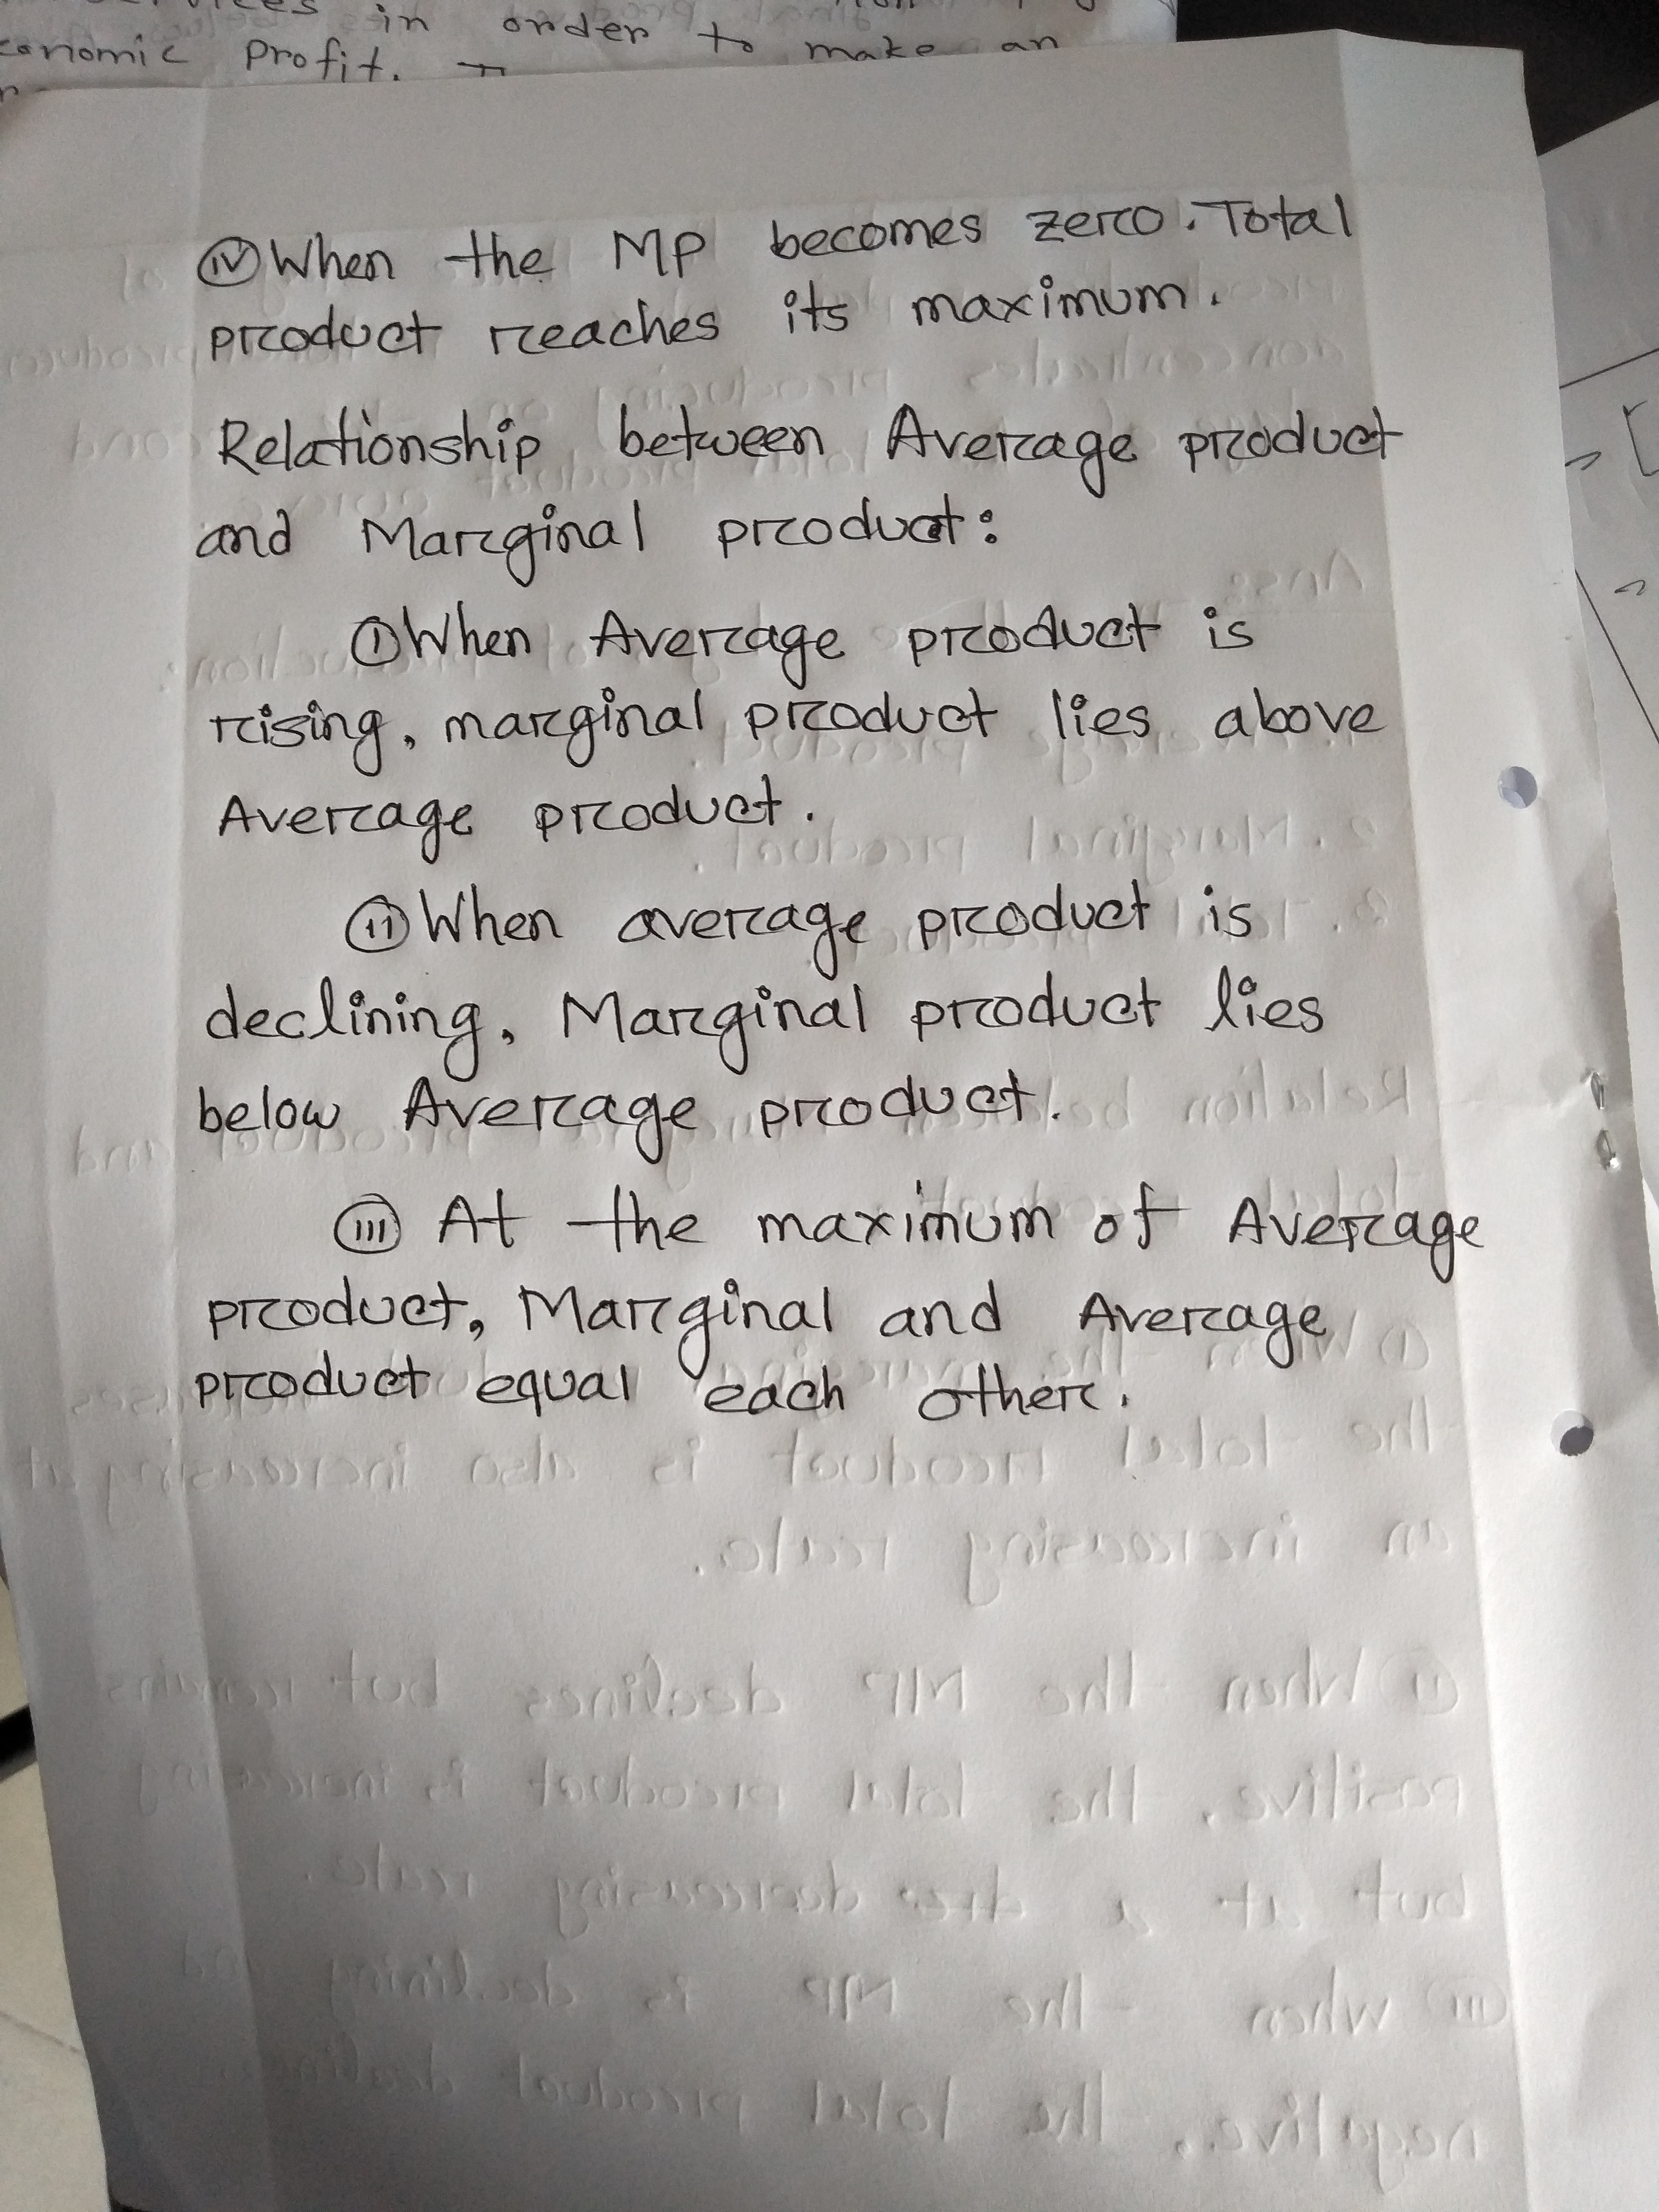 in order to make an
Profit.
(iv) When the MP becomes zero. Total
product reaches its maximum.
Relationship between Average product
and Marginal product:
(i) When Average product is
rising, marginal product lies above
Average product.
(ii) When average product is
declining, Marginal product lies
below Average product.
(iii) At the maximum of Average
product, Marginal and Average
product equal each other.